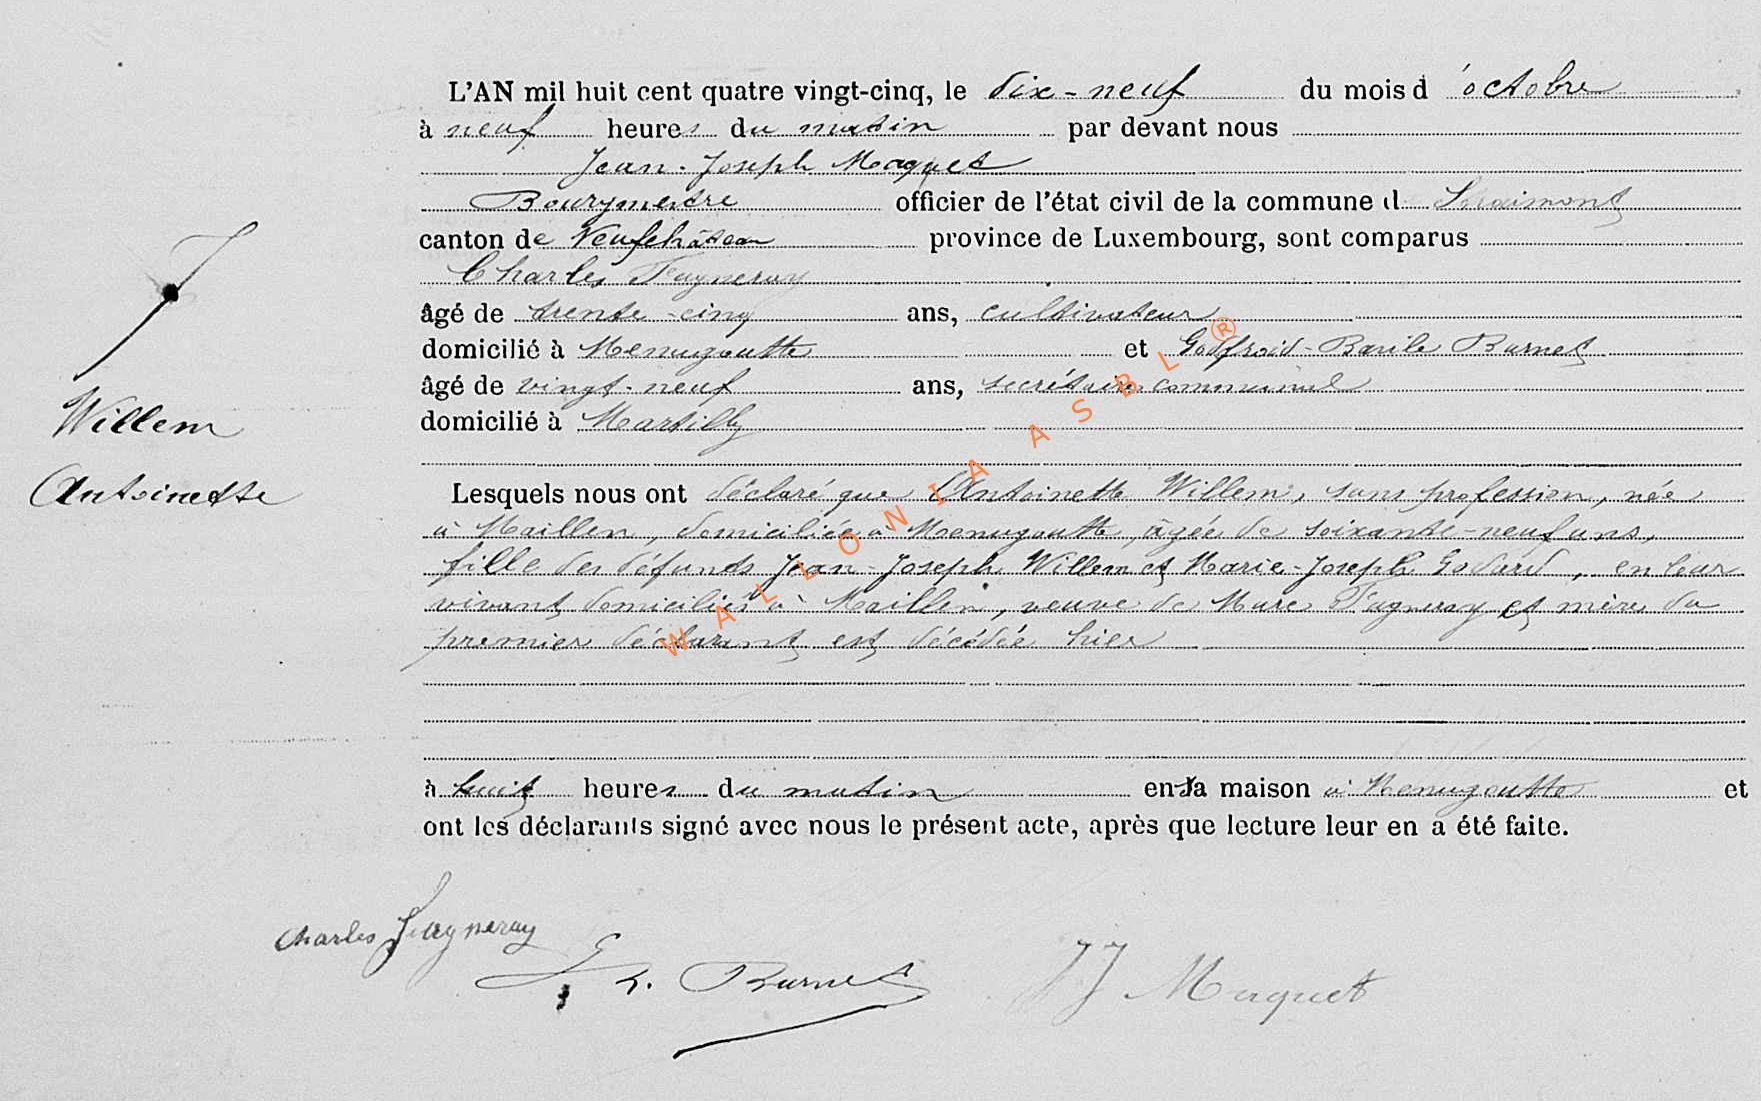 L'AN mil huit cent quatre vingt-cinq, le dix-neuf du mois d'octobre
à neuf heures du matin par devant nous
Jean-Joseph Maquet
Bourgmestre officier de l'état civil de la commune d Straimont
canton de Neufchâteau province de Luxembourg, sont comparus
Charles Fagneray
âgé de trente-cinq ans, cultivateur
domicilié à Menugoutte et Godfroid-Basile Burnet
âgé de vingt-neuf ans, secrétaire communal
domicilié à Martilly
Willem
Antoinette
Lesquels nous ont déclaré que Antoinette Willem, sans profession, née
à Maillen, domiciliée à Menugoutte, âgée de soixante-neuf ans,
fille des défunts Jean-Joseph Willem et Marie-Joseph Godard, en leur
vivant domiciliés à Maillen, veuve de Marc Fagneray et mère du
premier déclarant est décédée hier
à huit heures du matin en sa maison à Menugoutte et
ont les déclarants signé avec nous le présent acte, après que lecture leur en a été faite.
Charles Fagneray
G. B. Burnet
JJ Maquet
WALLONIA ASBL ®